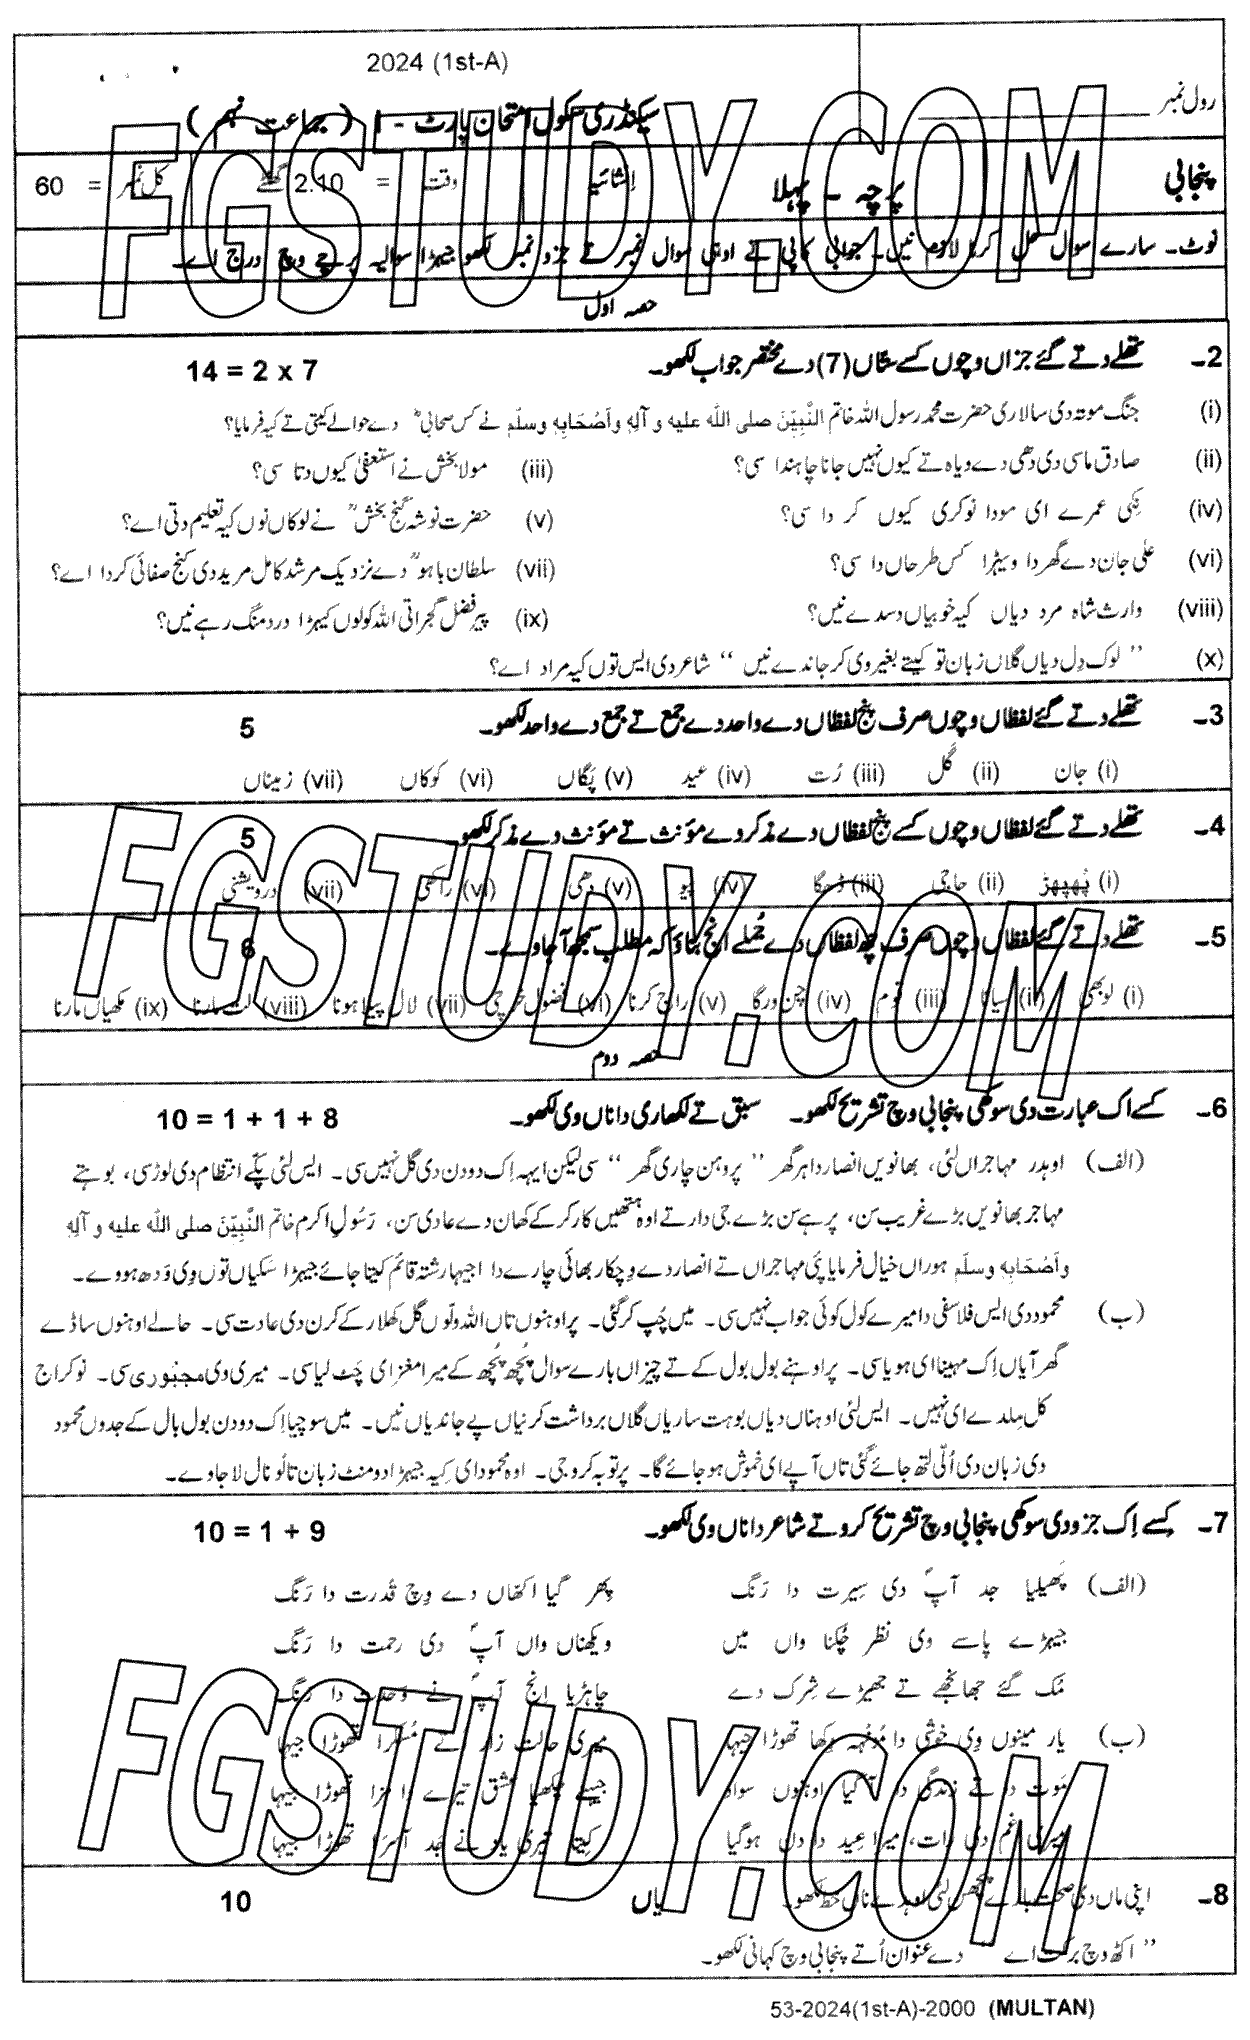 2024 (1st-A)
رول نمبر
سیکنڈری سکول امتحان پارٹ - I ( جماعت نہم )
پنجابی پرچہ ۔ پہلا اِنشائیہ وقت = 2.10 گھنٹے کل نمبر = 60
نوٹ۔ سارے سوال حل کرنا لازم نیں۔ جوابی کاپی تے اوہی سوال نمبر تے جزو نمبر لکھو جیہڑا سوالیہ پرچے وچ درج اے۔
حصہ اول
2۔ تھلے دتے گئے جزاں وچوں کسے ستاں (7) دے مختصر جواب لکھو۔ 14 = 2 x 7
(i) جنگ موتہ دی سالاری حضرت محمد رسول اللہ خاتم النَّبِیّٖنَ صلی اللہ علیہ و آلہٖ وَاَصْحَابِہٖ وسلّم نے کس صحابیؓ دے حوالے کیتی تے کیہ فرمایا؟
(ii) صادق ماسی دی دھی دے ویاہ تے کیوں نہیں جانا چاہندا سی؟ (iii) مولا بخش نے استعفیٰ کیوں دتا سی؟
(iv) نِکی عمرے ای مودا نوکری کیوں کر دا سی؟ (v) حضرت نوشہ گنج بخشؒ نے لوکاں نوں کیہ تعلیم دتی اے؟
(vi) علی جان دے گھر دا ویہڑا کس طرحاں دا سی؟ (vii) سلطان باہوؒ دے نزدیک مرشد کامل مرید دی کنج صفائی کردا اے؟
(viii) وارث شاہ مرد دیاں کیہ خوبیاں دسدے نیں؟ (ix) پیر فضل گجراتی اللہ کولوں کیہڑا درد منگ رہے نیں؟
(x) ” لوک دِل دیاں گلاں زبان تو کیتے بغیر وی کر جاندے نیں “ شاعر دی ایس توں کیہ مراد اے؟
3۔ تھلے دتے گئے لفظاں وچوں صرف پنج لفظاں دے واحد دے جمع تے جمع دے واحد لکھو۔ 5
(i) جان (ii) گَل (iii) رُت (iv) عید (v) پَگاں (vi) کوکاں (vii) زمیناں
4۔ تھلے دتے گئے لفظاں وچوں کسے پنج لفظاں دے مذکر دے مؤنث تے مؤنث دے مذکر لکھو۔ 5
(i) پُھپھڑ (ii) حاجی (iii) ڈھگا (iv) پیو (v) دھی (vi) راکھی (vii) درویشنی
5۔ تھلے دتے گئے لفظاں وچوں صرف چھ لفظاں دے جُملے انج بناؤ کہ مطلب سمجھ آ جاوے۔ 6
(i) لوبھی (ii) سیانا (iii) قوم (iv) چن ورگا (v) راج کرنا (vi) فضول خرچی (vii) لال پیلا ہونا (viii) لت مارنا (ix) مکھیاں مارنا
حصہ دوم
6۔ کسے اک عبارت دی سوکھی پنجابی وچ تشریح لکھو۔ سبق تے لکھاری دا ناں وی لکھو۔ 10 = 1 + 1 + 8
(الف) اوہدر مہاجراں لئی، بھانویں انصار دا ہر گھر ” پروہن چاری گھر “ سی لیکن ایہہ اِک دو دن دی گل نہیں سی۔ ایس لئی پکّے انتظام دی لوڑ سی، بوہتے
مہاجر بھانویں بڑے غریب سن، پر ہے سن بڑے جی دار تے اوہ ہتھیں کار کر کے کھان دے عادی سن، رَسُولِ اکرم خاتم النَّبِیّٖنَ صلی اللہ علیہ و آلہٖ
وَاَصْحَابِہٖ وسلّم ہوراں خیال فرمایا پئی مہاجراں تے انصار دے وچکار بھائی چارے دا اجیہا رشتہ قائم کیتا جائے جیہڑا سَکیاں توں وی وَدھ ہووے۔
(ب) محمود دی ایس فلاسفی دا میرے کول کوئی جواب نہیں سی۔ میں چُپ کر گئی۔ پر اوہنوں تاں اللہ ولّوں گل کھلار کے کرن دی عادت سی۔ حالے اوہنوں ساڈے
گھر آیاں اِک مہینا ای ہویا سی۔ پر اوہنے بول بول کے تے چیزاں بارے سوال پُچھ پُچھ کے میرا مغز ای چَٹ لیا سی۔ میری وی مجبُوری سی۔ نوکر اج
کل مِلدے ای نہیں۔ ایس لئی اوہناں دیاں بوہت ساریاں گلاں برداشت کرنیاں پے جاندیاں نیں۔ میں سوچیا اِک دو دن بول بال کے جدوں محمود
دی زبان دی اُلّی لتھ جائے گئی تاں آپے ای خموش ہو جائے گا۔ پر توبہ کرو جی۔ اوہ محمود ای کِیہ جیہڑا دو منٹ زبان تالُو نال لا جاوے۔
7۔ کِسے اِک جزو دی سوکھی پنجابی وچ تشریح کرو تے شاعر دا ناں وی لکھو۔ 10 = 1 + 9
(الف) پَھیلیا جد آپؐ دی سِیرت دا رَنگ پِھر گیا اکھّاں دے وچ قُدرت دا رَنگ
جیہڑے پاسے وی نظر چُکنا واں میں ویکھناں واں آپؐ دی رحمت دا رَنگ
مُک گئے جھانجھے تے جھیڑے شِرک دے چاہڑیا انج آپؐ نے وَحدت دا رَنگ
(ب) یار مینوں وِی خوشی دا مُونہہ وِکھا تھوڑا جیہا میری حالت زار تے مُسکرا تھوڑا جیہا
مَوت دا تے زندگی دا آ گیا اوہنوں سواد جیہنے چکھیا عشق تیرے دا مزا تھوڑا جیہا
میری غم دی رات، میرا عید دا دن ہو گیا کیتا تیری یاد نے جَد آسرا تھوڑا جیہا
8۔ اپنی ماں دی صحت بارے پچھن لئی اوہدے ناں خط لکھو۔ یاں 10
” اکٹھ وچ برکت اے “ دے عنوان اُتے پنجابی وچ کہانی لکھو۔
53-2024(1st-A)-2000 (MULTAN)
FGSTUDY.COM
FGSTUDY.COM
FGSTUDY.COM